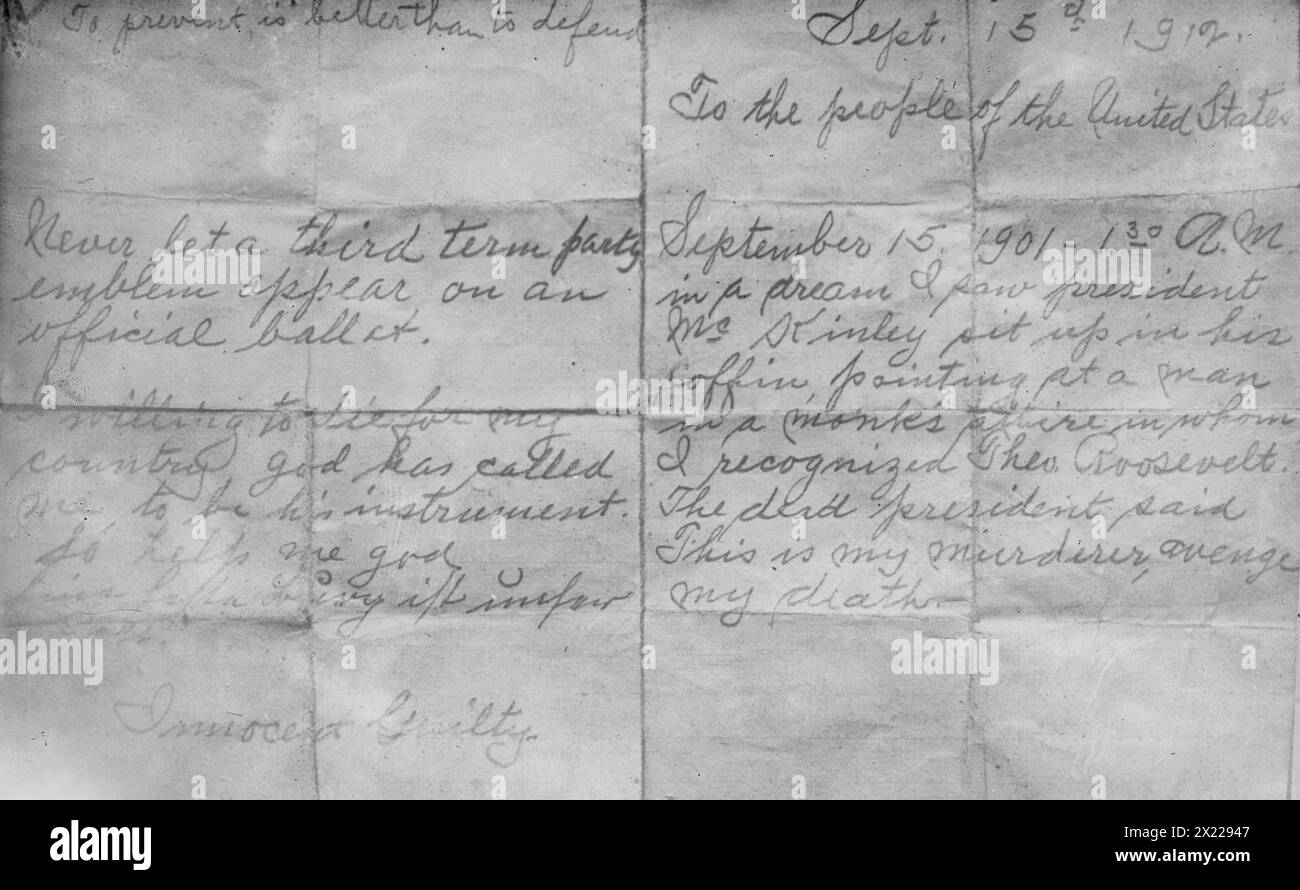 To prevent is better than to defend
Never let a third term party
emblem appear on an
official ballot.
I willing to die for my
country, god has called
me to be his instrument.
So help me god
burg ist unser
Innocent Guilty.
Sept. 15d 1912.
To the people of the United States
September 15. 1901 - 1 30 A. M.
in a dream I saw president
Mc Kinley sit up in his
coffin pointing at a man
in a monk's attire in whom
I recognized Theo. Roosevelt.
The dead president said
This is my murderer, avenge
my death.
alamy
Image ID: 2X22947
www.alamy.com